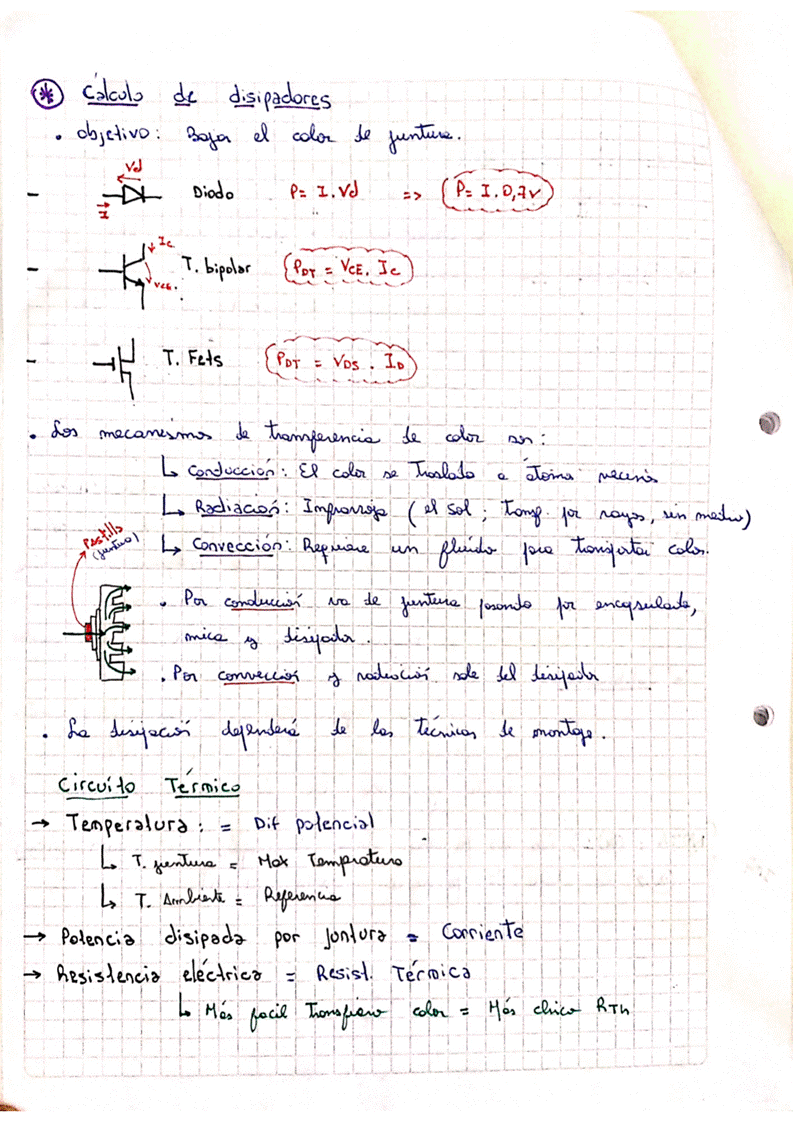 * Cálculo de disipadores
• objetivo: Bajar el calor de juntura.
- Vd I Diodo P= I.Vd => P= I.0,7v
- Ic VCE T. bipolar PDT = VCE. Ic
- T. Fets PDT = VDS . ID
• Los mecanismos de transferencia de calor son:
↳ Conducción: El calor se traslada a átomos vecinos
↳ Radiación: Infrarroja (el sol; transp. por rayos, sin medio)
↳ Convección: Requiere un fluído para transportar calor.
Pastilla
(juntura)
• Por conducción va de juntura pasando por encapsulado,
mica y disipador.
• Por convección y radiación sale del disipador
• La disipación dependerá de las técnicas de montaje.
Circuíto Térmico
→ Temperatura: = Dif potencial
↳ T. juntura = Max Temperatura
↳ T. Ambiente = Referencia
→ Potencia disipada por juntura = Corriente
→ Resistencia eléctrica = Resist. Térmica
↳ Más facil Transfiero calor = Más chico RTh